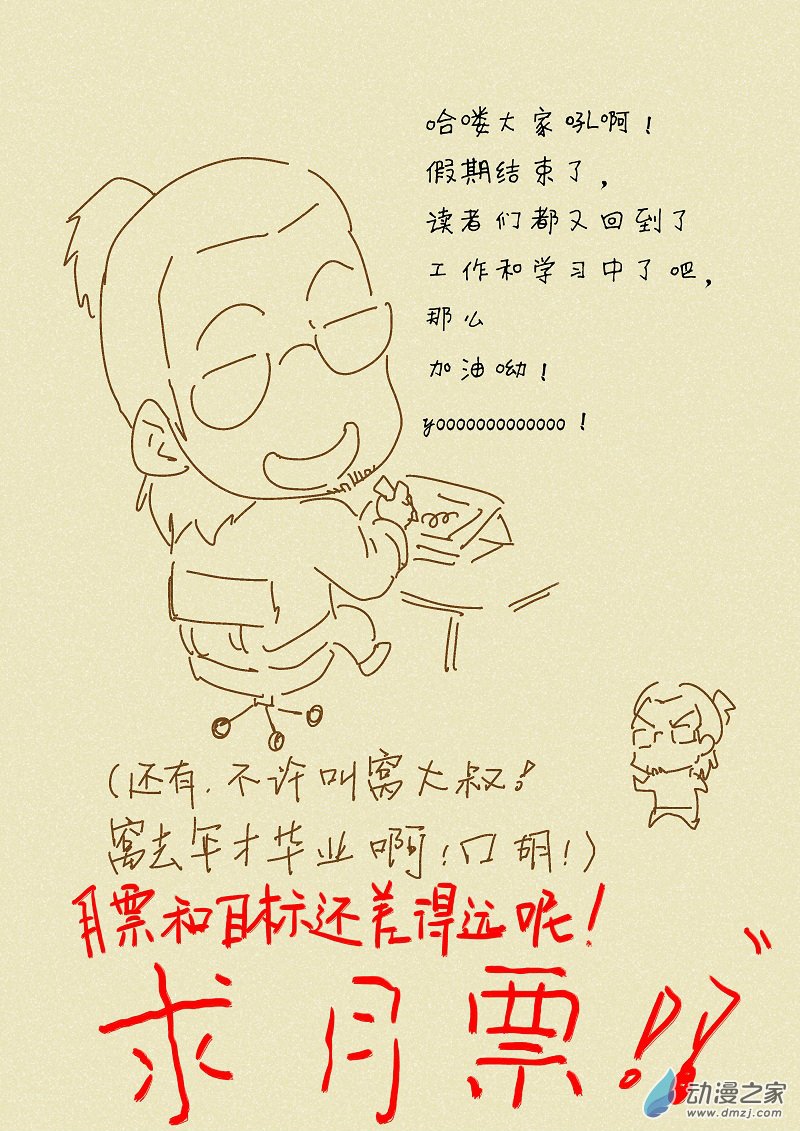 哈喽大家吼啊！
假期结束了，
读者们都又回到了
工作和学习中了吧，
那么
加油呦！
yooooooooooooo！
（还有，不许叫窝大叔！
窝去年才毕业啊！口胡！）
月票和目标还差得远呢！
求月票！！
动漫之家
www.dmzj.com